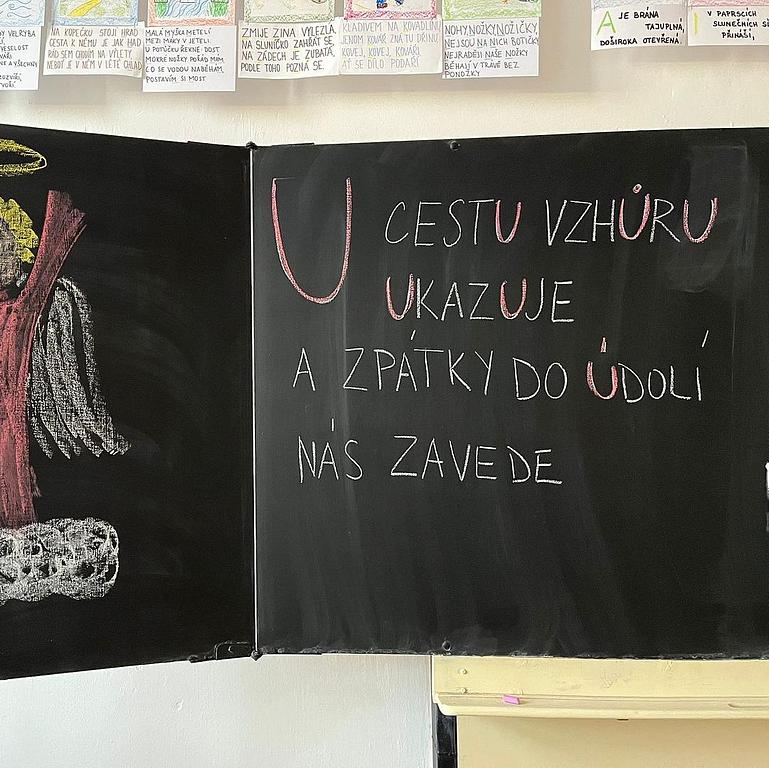 NA KOPEČKU STOJÍ HRAD
CESTA K NĚMU JE JAK HAD
RÁD SEM CHODÍM NA VÝLETY
NEBOŤ JE V NĚM V LÉTĚ CHLAD
MALÁ MYŠKA METELÍ
MEZI MÁKY V JETELI.
U POTŮČKU ŘEKNE: DOST
MOKRÉ NOŽKY POŘÁD MÁM,
CO SE VODOU NABĚHÁM,
POSTAVÍM SI MOST
ZMIJE ZINA VYLEZLA,
NA SLUNÍČKO ZAHŘÁT SE,
NA ZÁDECH JE ZUBATÁ,
PODLE TOHO POZNÁ SE.
KLADIVEM NA KOVADLINU,
JENOM KOVÁŘ ZNÁ TU DŘINU.
KOVEJ, KOVEJ, KOVÁŘI,
AŤ SE DÍLO PODAŘÍ
NOHY, NOŽKY, NOŽIČKY,
NEJSOU NA NICH BOTIČKY,
NEJRADĚJI NAŠE NOŽKY
BĚHAJÍ V TRÁVĚ BEZ
PONOŽKY
A JE BRÁNA
TAJUPLNÁ,
DOŠIROKA OTEVŘENÁ
V PAPRSCÍCH
SLUNEČNÍCH
PŘINÁŠÍ,
U CESTU VZHŮRU
UKAZUJE
A ZPÁTKY DO ÚDOLÍ
NÁS ZAVEDE